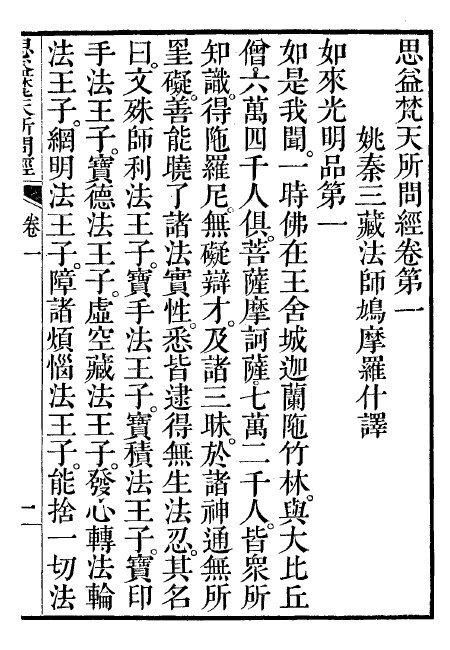 思益梵天所問經卷第一
姚秦三藏法師鳩摩羅什譯
如來光明品第一
如是我聞。一時佛在王舍城迦蘭陁竹林。與大比丘
僧六萬四千人俱。菩薩摩訶薩。七萬二千人。皆衆所
知識。得陁羅尼。無礙辯才。及諸三昧。於諸神通無所
罣礙。善能曉了諸法實性。悉皆逮得無生法忍。其名
曰。文殊師利法王子。寶手法王子。寶積法王子。寶印
手法王子。寶德法王子。虛空藏法王子。發心轉法輪
法王子。網明法王子。障諸煩惱法王子。能捨一切法
思益梵天所問經
卷一
二